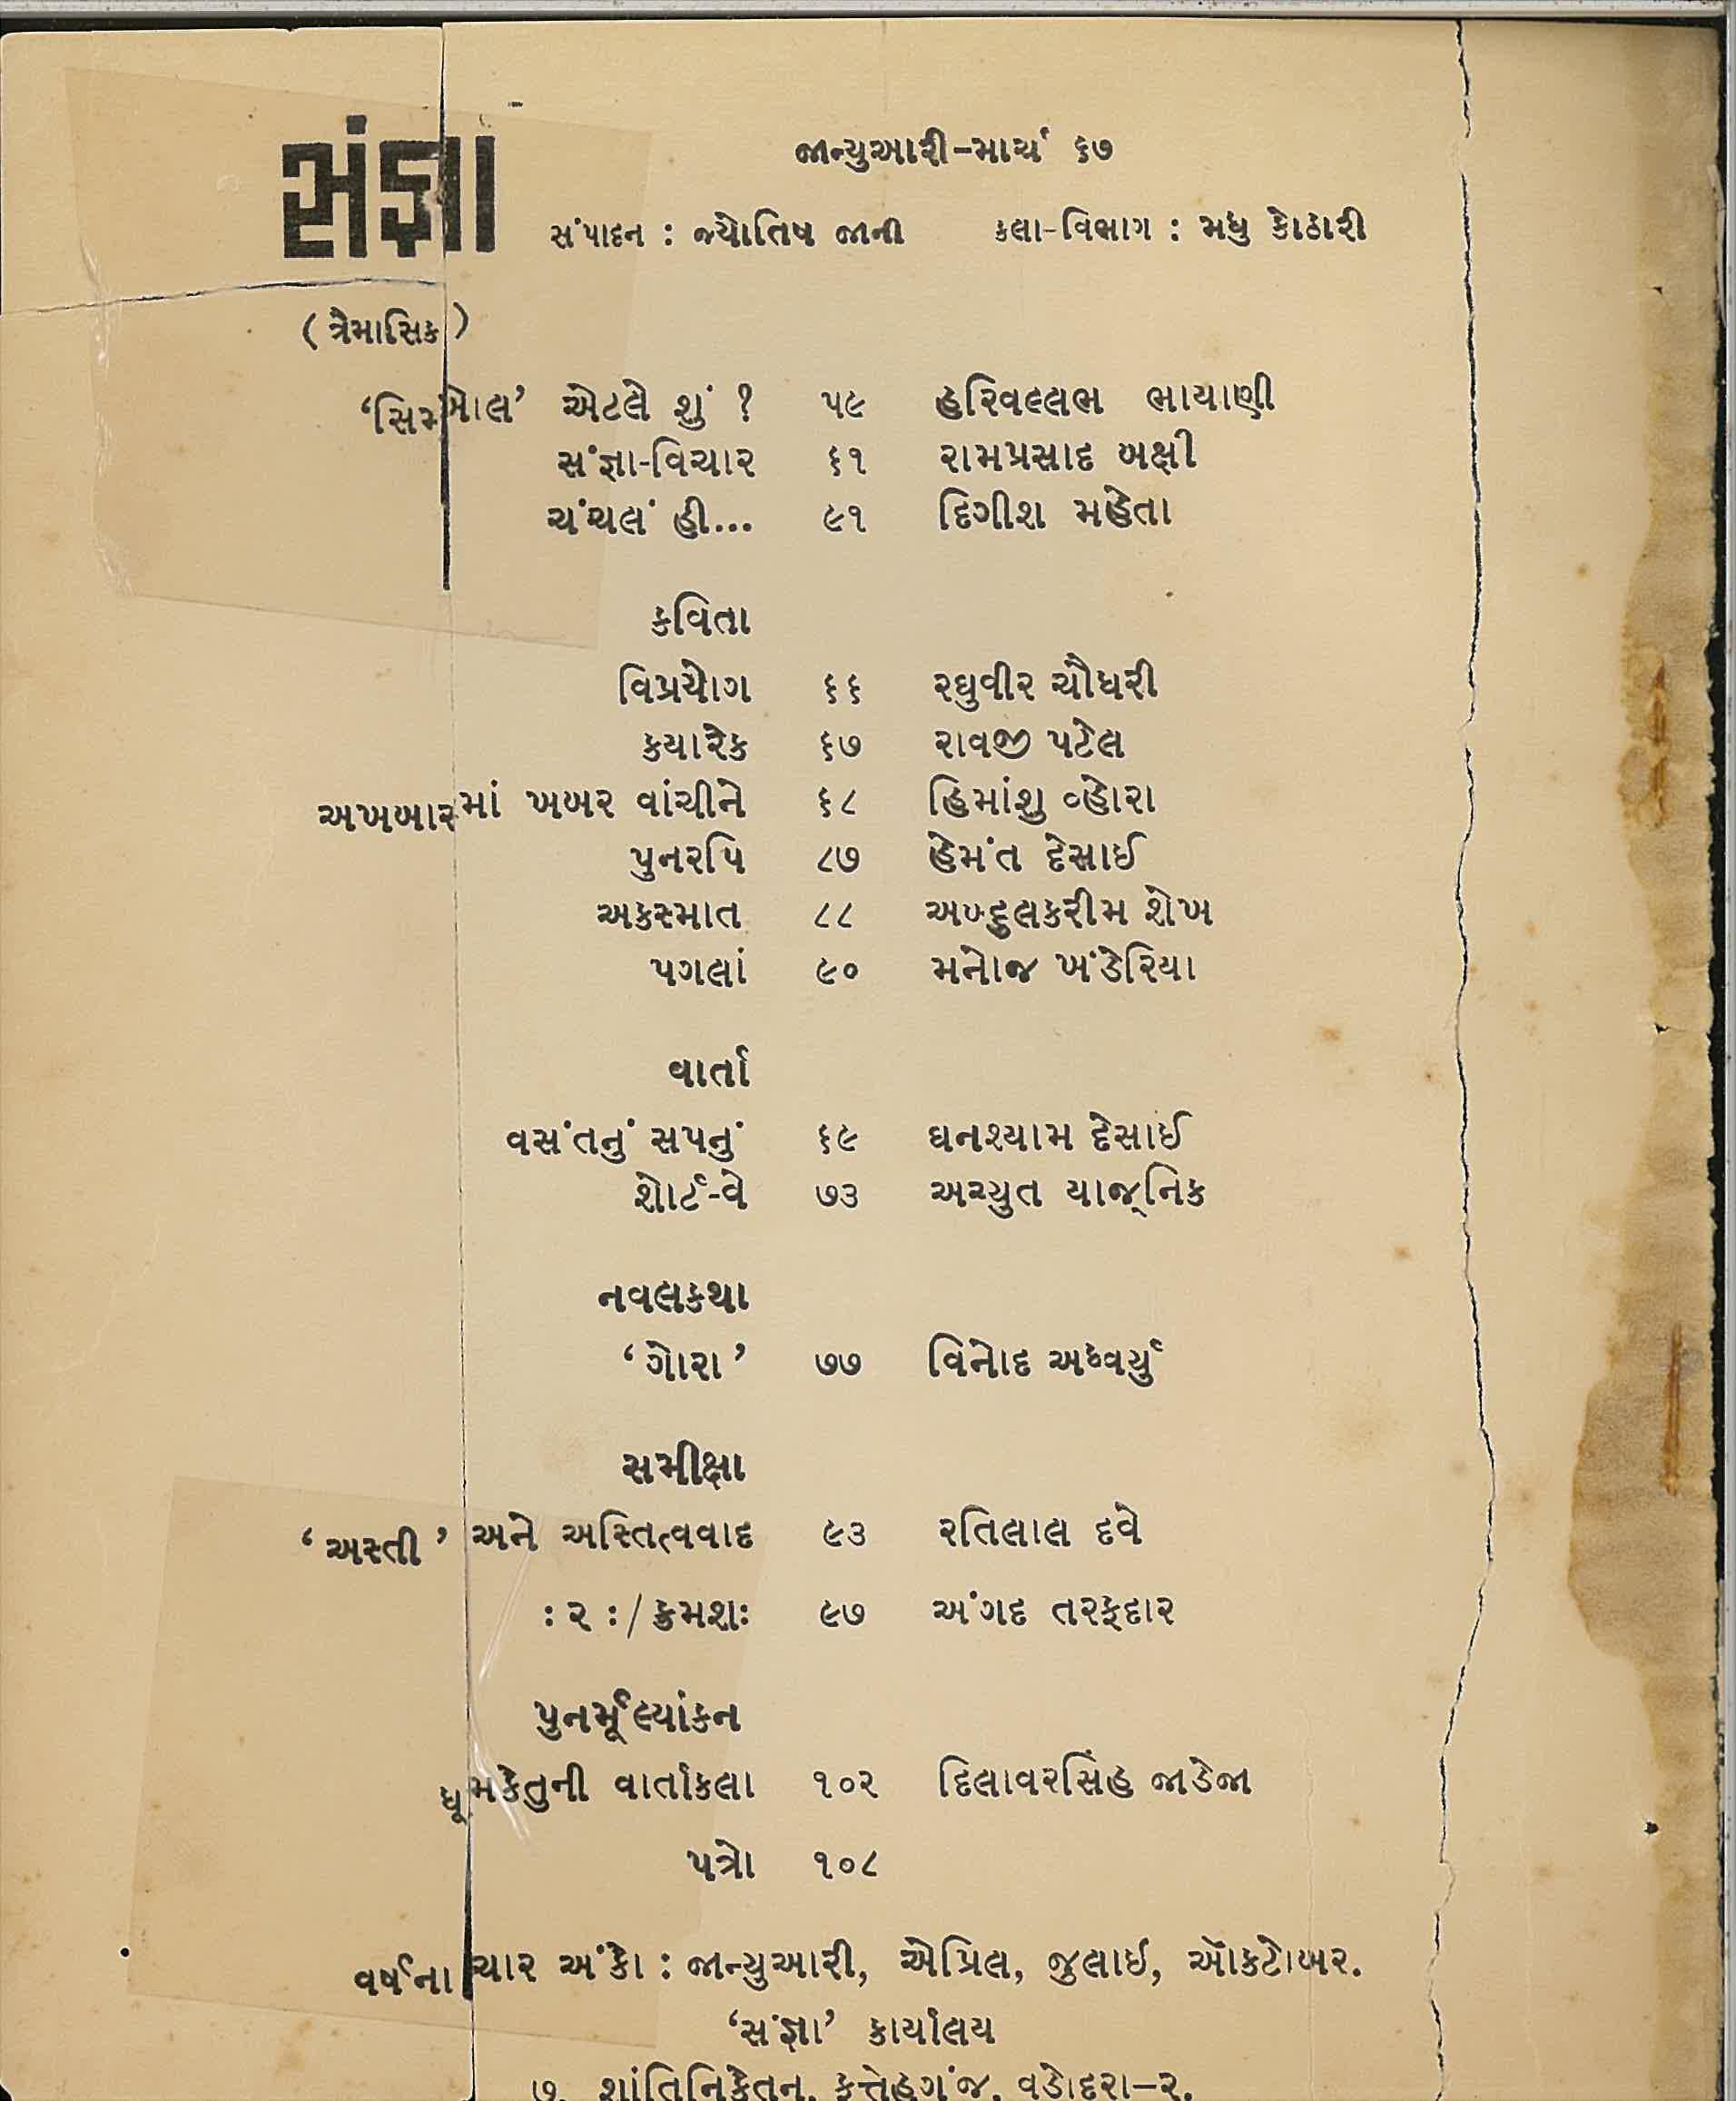 સંજ્ઞા
જાન્યુઆરી-માર્ચ ૬૭
સંપાદન : જ્યોતિષ જાની કલા-વિભાગ : મધુ કોઠારી
(ત્રૈમાસિક)
‘સિમ્બોલ’ એટલે શું ? ૫૯ હરિવલ્લભ ભાયાણી
સંજ્ઞા-વિચાર ૬૧ રામપ્રસાદ બક્ષી
ચંચલં હી... ૯૧ દિગીશ મહેતા
કવિતા
વિપ્રયોગ ૬૬ રઘુવીર ચૌધરી
કયારેક ૬૭ રાવજી પટેલ
અખબારમાં ખબર વાંચીને ૬૮ હિમાંશુ વ્હોરા
પુનરપિ ૮૭ હેમંત દેસાઈ
અકસ્માત ૮૮ અબ્દુલકરીમ શેખ
પગલાં ૯૦ મનોજ ખંડેરિયા
વાર્તા
વસંતનું સપનું ૬૯ ઘનશ્યામ દેસાઈ
શોર્ટ-વે ૭૩ અચ્યુત યાજ્નિક
નવલકથા
‘ગોરા’ ૭૭ વિનોદ અધ્વર્યુ
સમીક્ષા
‘અસ્તી’ અને અસ્તિત્વવાદ ૯૩ રતિલાલ દવે
: ૨ :/ ક્રમશઃ ૯૭ અંગદ તરફદાર
પુનર્મૂલ્યાંકન
ધૂમકેતુની વાર્તાકલા ૧૦૨ દિલાવરસિંહ જાડેજા
પત્રો ૧૦૮
વર્ષના ચાર અંકો : જાન્યુઆરી, એપ્રિલ, જુલાઈ, ઑકટોબર.
‘સંજ્ઞા’ કાર્યાલય
૭, શાંતિનિકેતન, ફત્તેહગંજ, વડોદરા-૨.